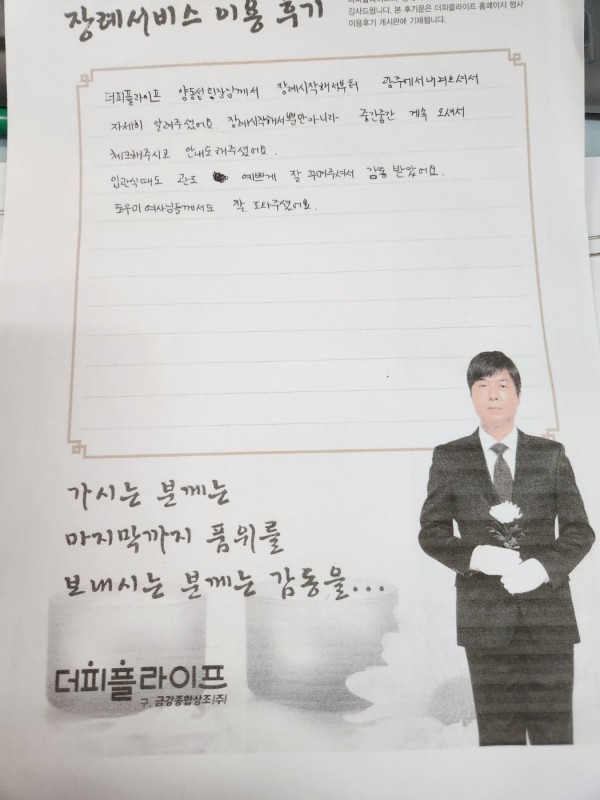 장례서비스 이용 후기
감사드립니다. 본 후기문은 더피플라이프 홈페이지 행사
이용후기 게시판에 기재됩니다.
더피플라이프 양동선 팀장님께서 장례시작해서부터 광주에서 내려오셔서
자세히 알려주셨어요. 장례시작해서뿐만아니라 중간중간 계속 오셔서
체크해주시고 안내도 해주셨어요.
입관식때도 관도 예쁘게 잘 꾸며주셔서 감동 받았어요.
도우미 여사님들께서도 잘 도와주셨어요.
가시는 분께는
마지막까지 품위를
보내시는 분께는 감동을...
더피플라이프
구. 금강종합상조(주)